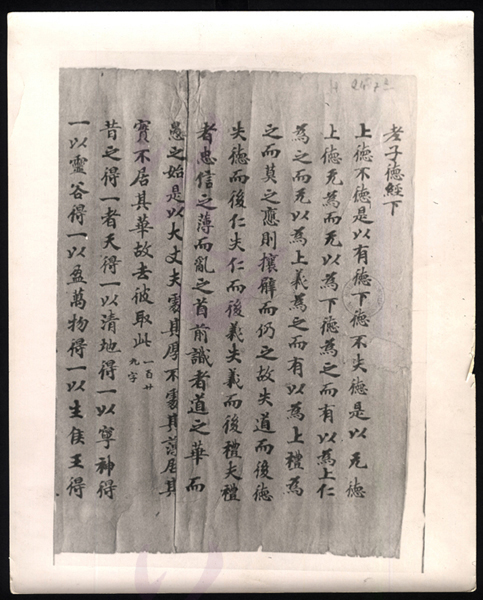 老子德經下
上德不德是以有德下德不失德是以无德
上德无為而无以為下德為之而有以為上仁
為之而无以為上義為之而有以為上禮為
之而莫之應則攘臂而仍之故失道而後德
失德而後仁失仁而後義失義而後禮夫禮
者忠信之薄而亂之首前識者道之華而
愚之始是以大丈夫處其厚不處其薄居其
實不居其華故去彼取此 一百廿九字
昔之得一者天得一以清地得一以寧神得
一以靈谷得一以盈萬物得一以生侯王得